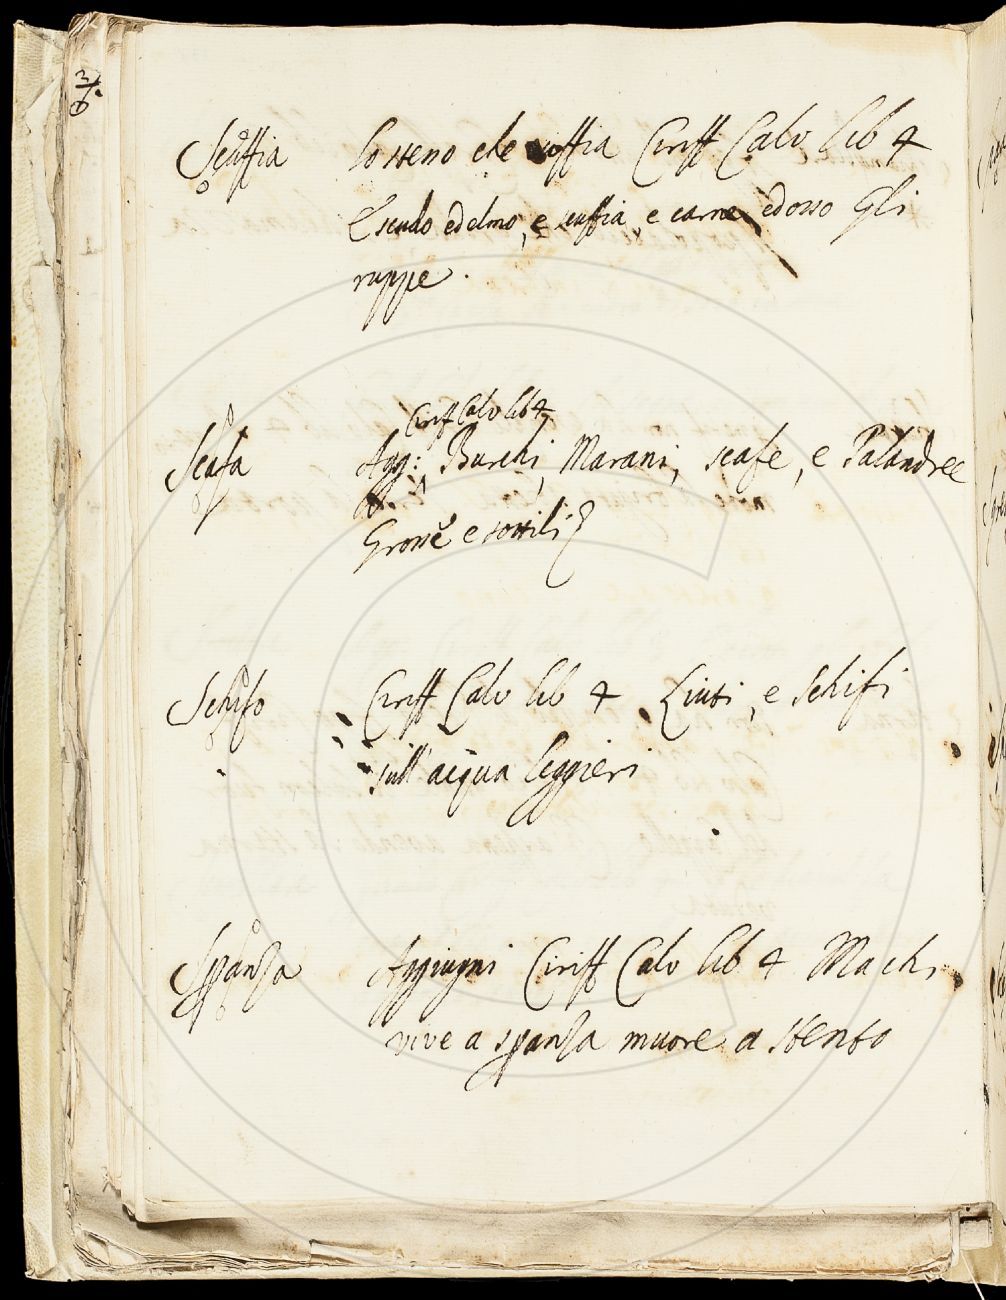 Scuffia Lo steno che cuffia Ciriff Calv lib 4
E scudo ed elmo, e cuffia, e carne, ed osso Gli
ruppe.
Ciriff Calv lib 4
Scafa Agg: Burchi, Marani, scafe, e Palandree
Grosse e sottili
Schifo Ciriff Calv lib 4 Liuti, e Schifi
sull'acqua leggieri
Spanza Aggiugni Ciriff Calv lib 4 Ma chi
vive a spanza muore a stento